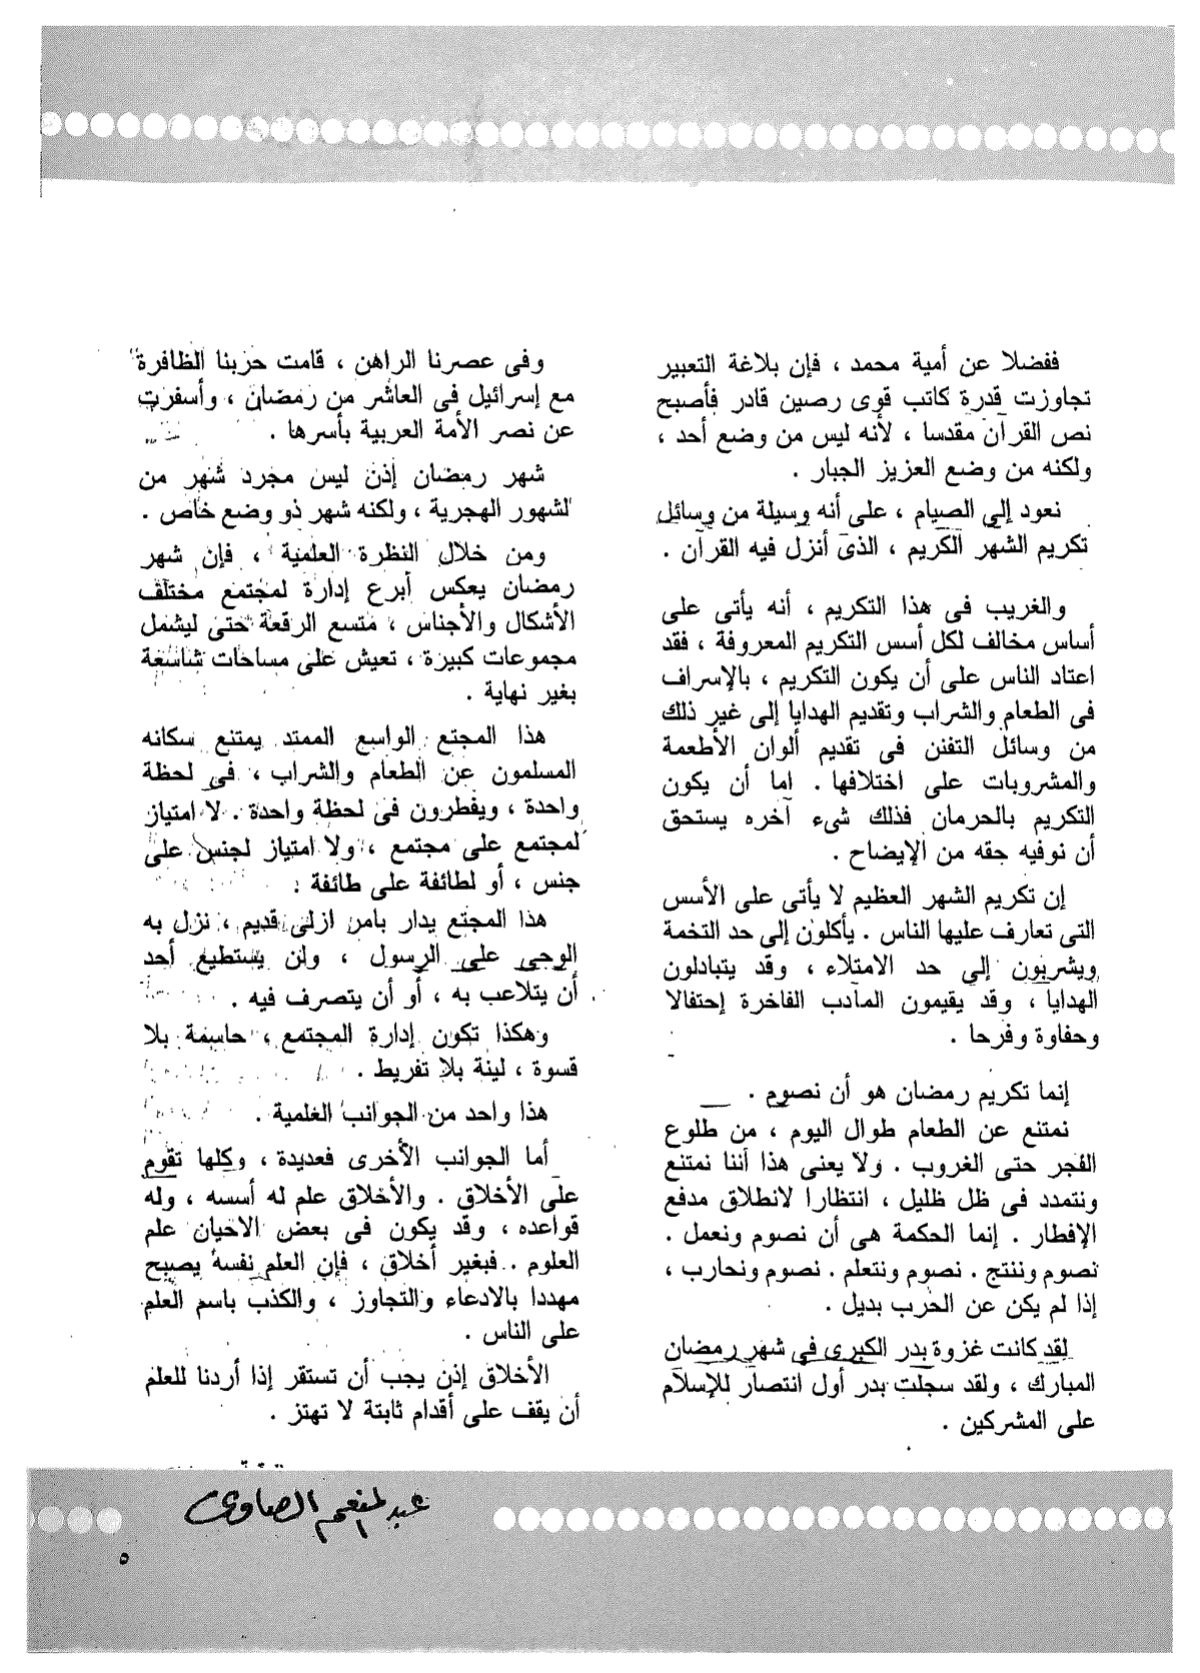 ففضلا عن أمية محمد ، فإن بلاغة التعبير
تجاوزت قدرة كاتب قوى رصين قادر فأصبح
نص القرآن مقدسا ، لأنه ليس من وضع أحد ،
ولكنه من وضع العزيز الجبار .
نعود إلى الصيام ، على أنه وسيلة من وسائل
تكريم الشهر الكريم ، الذى أنزل فيه القرآن .
والغريب فى هذا التكريم ، أنه يأتى على
أساس مخالف لكل أسس التكريم المعروفة ، فقد
اعتاد الناس على أن يكون التكريم ، بالإسراف
فى الطعام والشراب وتقديم الهدايا إلى غير ذلك
من وسائل التفنن فى تقديم ألوان الأطعمة
والمشروبات على اختلافها . اما أن يكون
التكريم بالحرمان فذلك شىء آخره يستحق
أن نوفيه حقه من الإيضاح .
إن تكريم الشهر العظيم لا يأتى على الأسس
التى تعارف عليها الناس . يأكلون إلى حد التخمة
ويشربون إلى حد الامتلاء ، وقد يتبادلون
الهدايا ، وقد يقيمون المآدب الفاخرة إحتفالا
وحفاوة وفرحا .
إنما تكريم رمضان هو أن نصوم .
نمتنع عن الطعام طوال اليوم ، من طلوع
الفجر حتى الغروب . ولا يعنى هذا أننا نمتنع
ونتمدد فى ظل ظليل ، انتظارا لانطلاق مدفع
الإفطار . إنما الحكمة هى أن نصوم ونعمل .
نصوم وننتج . نصوم ونتعلم . نصوم ونحارب ،
إذا لم يكن عن الحرب بديل .
لقد كانت غزوة بدر الكبرى فى شهر رمضان
المبارك ، ولقد سجلت بدر أول انتصار للإسلام
على المشركين .
وفى عصرنا الراهن ، قامت حربنا الظافرة
مع إسرائيل فى العاشر من رمضان ، وأسفرت
عن نصر الأمة العربية بأسرها .
شهر رمضان إذن ليس مجرد شهر من
الشهور الهجرية ، ولكنه شهر ذو وضع خاص .
ومن خلال النظرة العلمية ، فإن شهر
رمضان يعكس أبرع إدارة لمجتمع مختلف
الأشكال والأجناس ، متسع الرقعة حتى ليشمل
مجموعات كبيرة ، تعيش على مساحات شاسعة
بغير نهاية .
هذا المجتع الواسع الممتد يمتنع سكانه
المسلمون عن الطعام والشراب ، فى لحظة
واحدة ، ويفطرون فى لحظة واحدة . لا امتياز
لمجتمع على مجتمع ، ولا امتياز لجنس على
جنس ، أو لطائفة على طائفة .
هذا المجتع يدار بامر ازلى قديم ، نزل به
الوحى على الرسول ، ولن يستطيع أحد
أن يتلاعب به ، أو أن يتصرف فيه .
وهكذا تكون إدارة المجتمع ، حاسمة بلا
قسوة ، لينة بلا تفريط .
هذا واحد من الجوانب العلمية .
أما الجوانب الأخرى فعديدة ، وكلها تقوم
على الأخلاق . والأخلاق علم له أسسه ، وله
قواعده ، وقد يكون فى بعض الاحيان علم
العلوم .. فبغير أخلاق ، فإن العلم نفسه يصبح
مهددا بالادعاء والتجاوز ، والكذب باسم العلم
على الناس .
الأخلاق إذن يجب أن تستقر إذا أردنا للعلم
أن يقف على أقدام ثابتة لا تهتز .
عبد المنعم الصاوى
٥